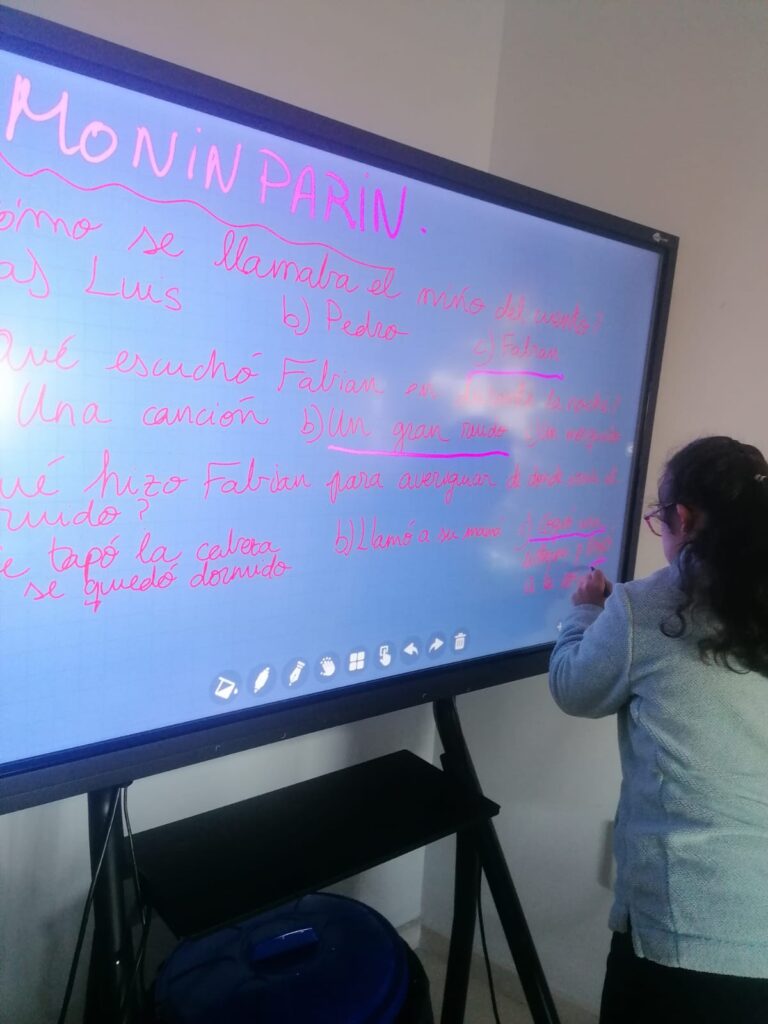 MONIN PARIN.
ómo se llamaba el niño del cuento?
a) Luis b) Pedro c) Fabian
Qué escuchó Fabian en la noche?
Una canción b) Un gran ruido
ué hizo Fabian para averiguar de donde el
ruido?
e tapó la cabeza b) Llamó a su mamá
se quedó dormido